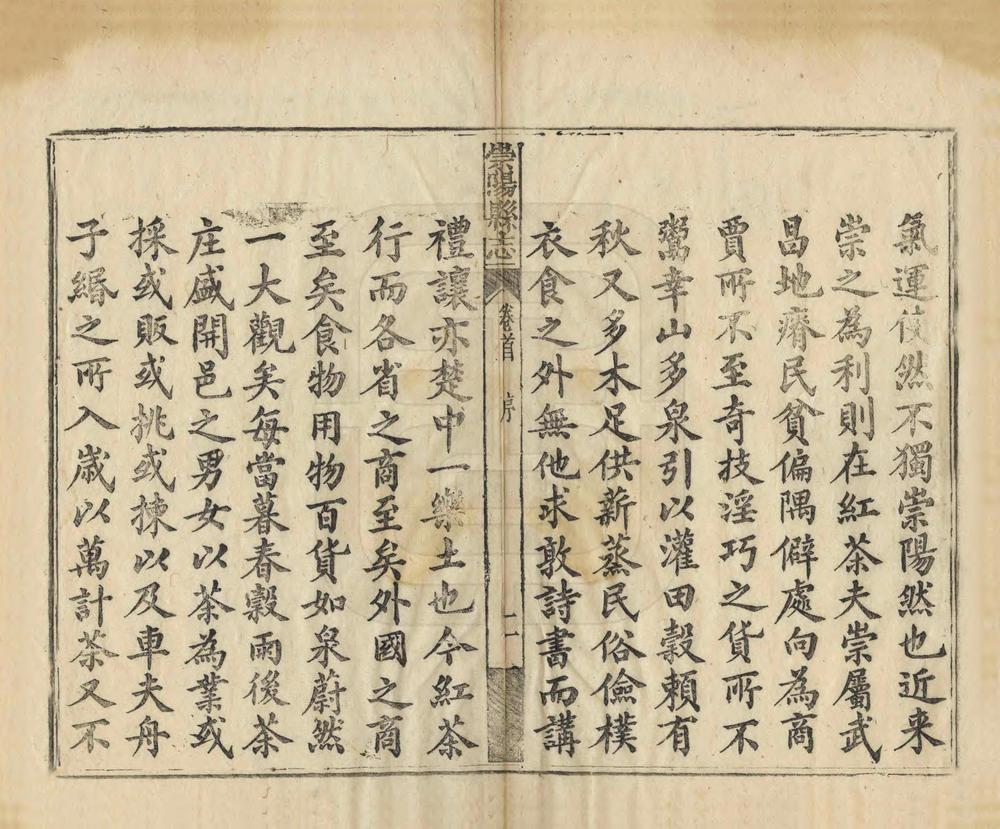 氣運使然不獨崇陽然也近来
崇之為利則在紅茶夫崇屬武
昌地瘠民貧偏隅僻處向為商
賈所不至奇技淫巧之貨所不
鬻幸山多泉引以灌田穀頼有
秋又多木足供薪蒸民俗儉樸
衣食之外無他求敦詩書而講
崇陽縣志
卷首
序
二
禮讓亦楚中一樂土也今紅茶
行而各省之商至矣外國之商
至矣食物用物百貨如泉蔚然
一大觀矣每當暮春穀雨後茶
庄盛開邑之男女以茶為業或
採或販或挑或揀以及車夫舟
子緡之所入歲以萬計茶又不